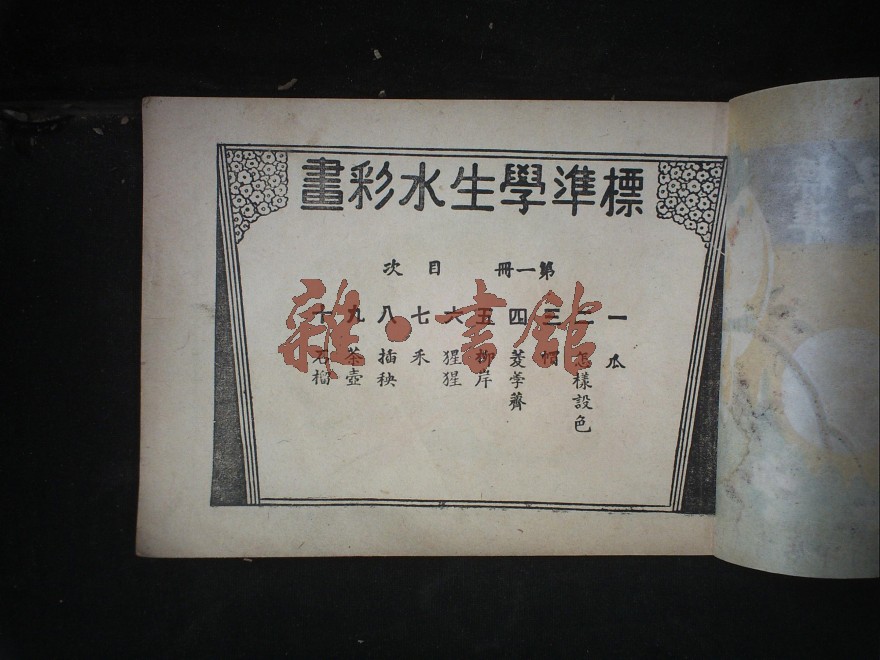 標準學生水彩畫
第一冊 目次
一 瓜
二 怎樣設色
三 帽
四 菱荸薺
五 柳岸
六 猩猩
七 禾
八 插秧
九 茶壺
十 石榴
雜·書館